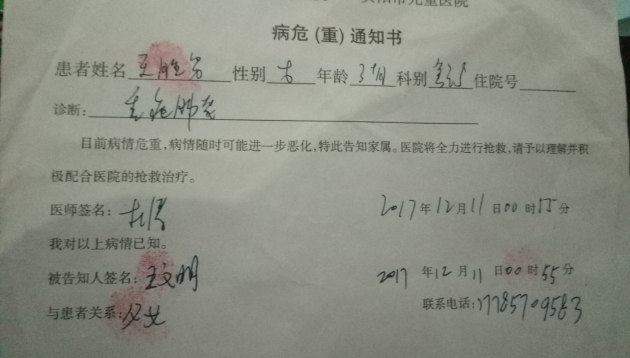 市儿童医院
病危(重)通知书
患者姓名 王胜 性别 女 年龄 3月 科别 住院号
诊断: 重症肺炎
目前病情危重,病情随时可能进一步恶化,特此告知家属。医院将全力进行抢救,请予以理解并积
极配合医院的抢救治疗。
医师签名: 2017年12月11日00时55分
我对以上病情已知。
被告知人签名: 王文明 2017年12月11日00时55分
与患者关系: 父女 联系电话: 17785709583